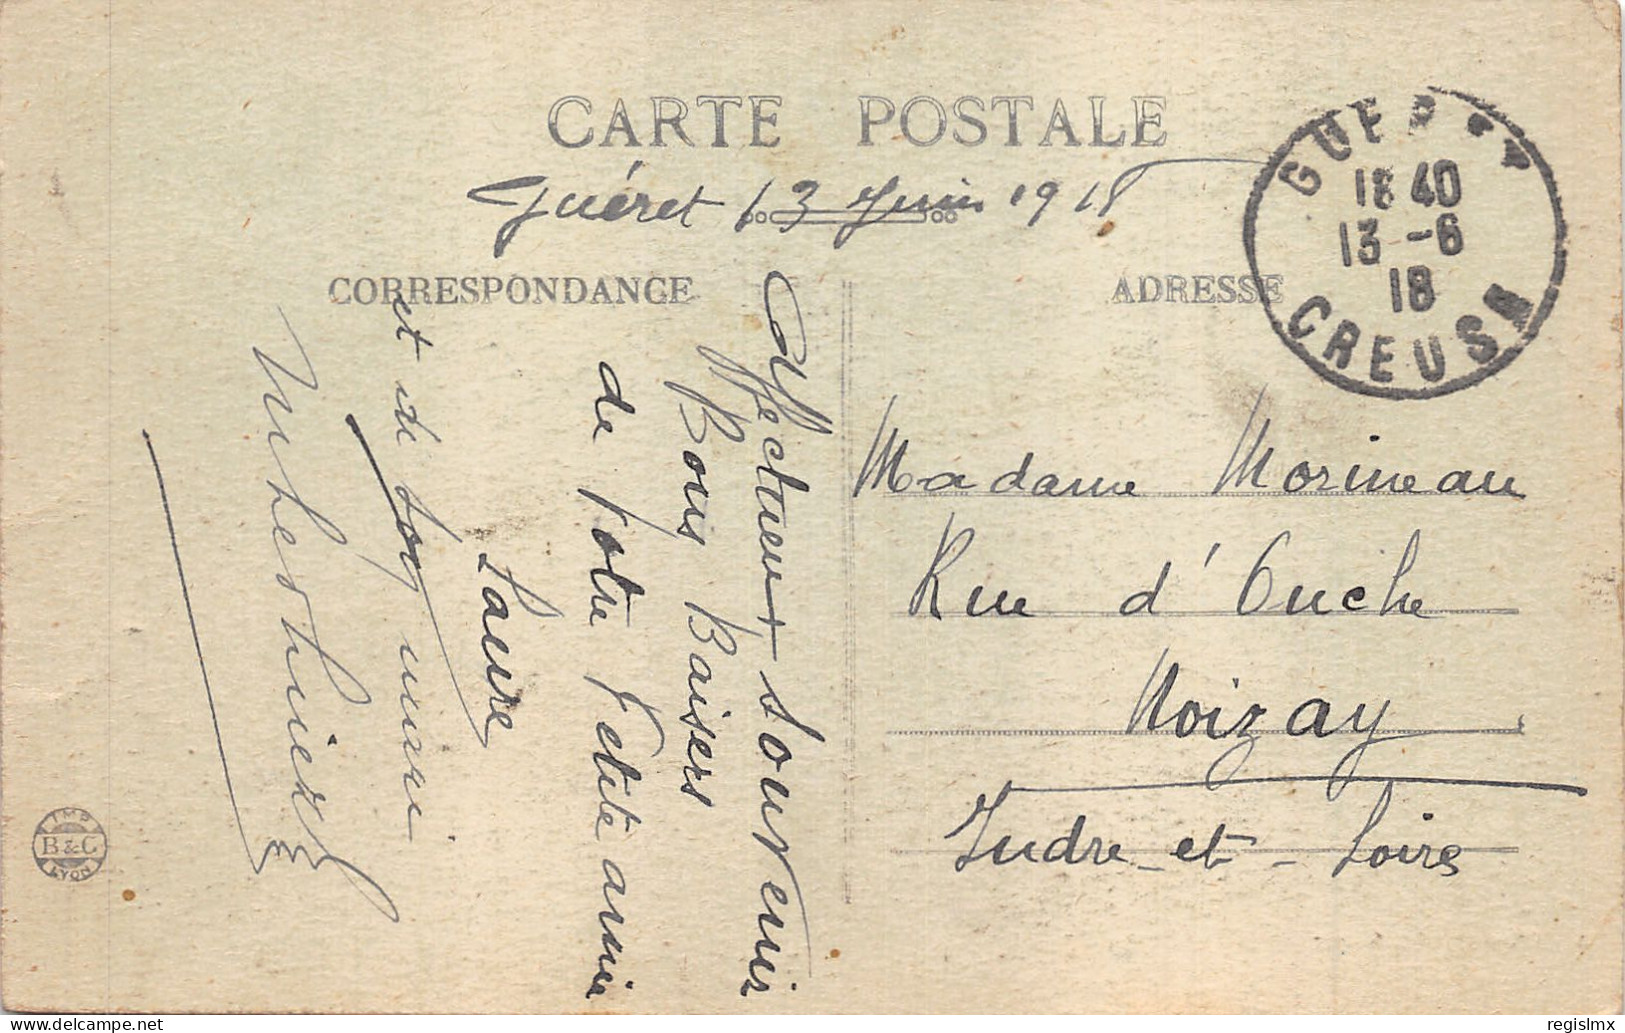 CARTE POSTALE
Guéret 13 Juin 1918
CORRESPONDANCE
ADRESSE
GUER
18 40
13 -6
18
CREUSE
Affectueux souvenir
Bons Baisers
de votre petite amie
Laure
et de son mari
Madame Morineau
Rue d'Ouche
Noizay
Indre-et-Loire
IMP.
B & C
LYON
Delcampe.net
regislmx